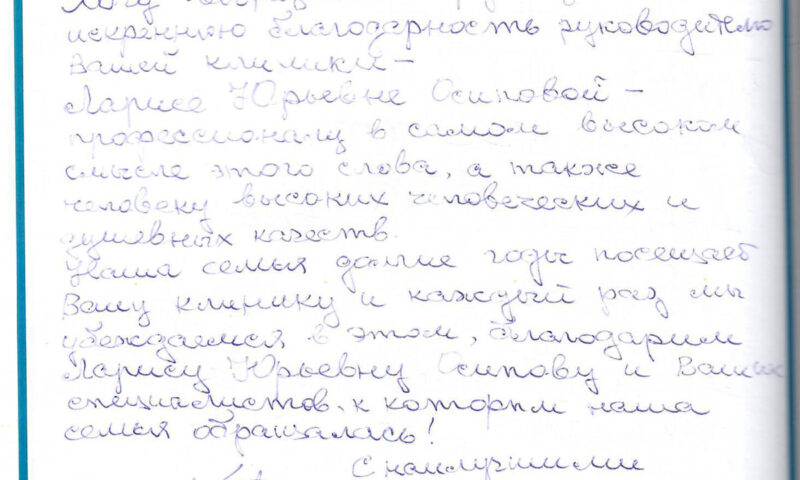 искреннюю благодарность руководителю
Вашей клиники –
Ларисе Юрьевне Осиповой –
профессионалу в самом высоком
смысле этого слова, а также
человеку высоких человеческих и
душевных качеств.
Наша семья долгие годы посещает
Вашу клинику и каждый раз мы
убеждаемся в этом, благодарим
Ларису Юрьевну Осипову и Ваших
специалистов, к которым наша
семья обращалась!
С наилучшими